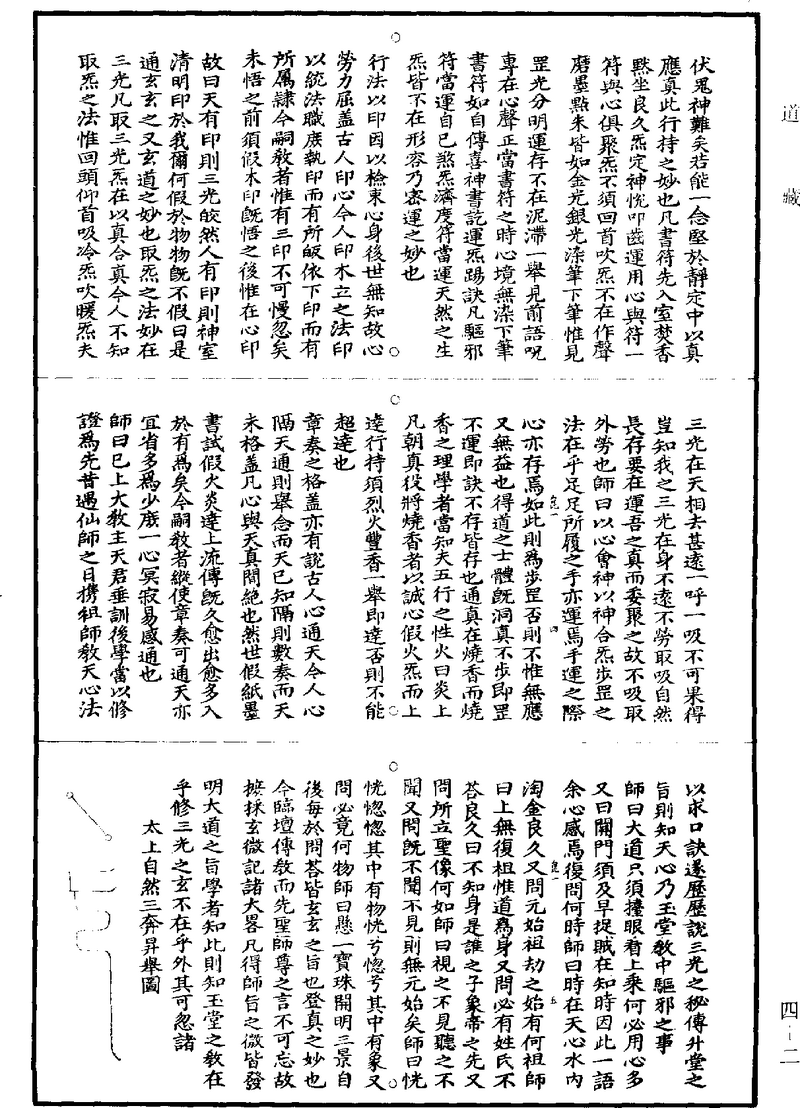 道藏
伏鬼神難矣若能一念堅於靜定中以真
應真此行持之妙也凡書符先入室焚香
默坐良久炁定神悅叩齒運用心與符一
符與心俱聚炁不須回首吹炁不在作聲
磨墨點朱皆如金光銀光滌筆下筆惟見
罡光分明運存不在泥滯一舉見前語呪
專在心聲正當書符之時心境無染下筆
書符如自傳喜神書訖運炁踢訣凡驅邪
符當運自己煞炁濟度符當運天然之生
炁皆不在形容乃密運之妙也
行法以印因以檢束心身後世無知故心
勞力屈蓋古人印心今人印木立之法印
以統法職庶執印而有所皈依下印而有
所屬隸今嗣教者惟有三印不可慢忽矣
未悟之前須假木印旣悟之後惟在心印
故曰天有印則三光皎然人有印則神室
清明印於我爾何假於物物旣不假曰是
通玄玄之又玄道之妙也取炁之法妙在
三光凡取三光炁在以真合真今人不知
取炁之法惟回頭仰首吸冷炁吹暖炁夫
三光在天相去甚遠一呼一吸不可果得
豈知我之三光在身不遠不勞取吸自然
長存要在運吾之真而委聚之故不吸取
外勞也師曰以心會神以神合炁步罡之
法在乎足足所履之手亦運焉手運之際
心亦存焉如此則為步罡否則不惟無應
又無益也得道之士體旣洞真不步即罡
不運即訣不存皆存也通真在燒香而燒
香之理學者當知夫五行之性火曰炎上
凡朝真役將燒香者以誠心假火炁而上
達行持須烈火豐香一舉即達否則不能
超達也
章奏之格蓋亦有說古人心通天今人心
隔天通則舉念而天已知隔則數奏而天
未格蓋凡心與天真間絶也然世假紙墨
書試假火炎達上流傳旣久愈出愈多入
於有為矣今嗣教者縱使章奏可通天亦
宜省多為少庶一心冥寂易感通也
師曰已上大教主天君垂訓後學當以修
證為先昔遇仙師之日携祖師教天心法
以求口訣遂歷歷說三光之秘傳升堂之
旨則知天心乃玉堂教中驅邪之事
師曰大道只須擡眼看上乘何必用心多
又曰開門須及早捉賊在知時因此一語
余心感焉復問何時師曰時在天心水内
淘金良久又問元始祖劫之始有何祖師
曰上無復祖惟道為身又問必有姓氏不
荅良久曰不知身是誰之子象帝之先又
問所立聖像何如師曰視之不見聽之不
聞又問旣不聞不見則無元始矣師曰恍
恍惚惚其中有物恍兮惚兮其中有象又
問必竟何物師曰懸一寶珠開明三景自
後每於問荅皆玄玄之旨也登真之妙也
今臨壇傳教而先聖師尊之言不可忘故
摭採玄微記諸大畧凡得師旨之微皆發
明大道之旨學者知此則知玉堂之教在
乎修三光之玄不在乎外其可忽諸
太上自然三奔昇舉圖
四-二